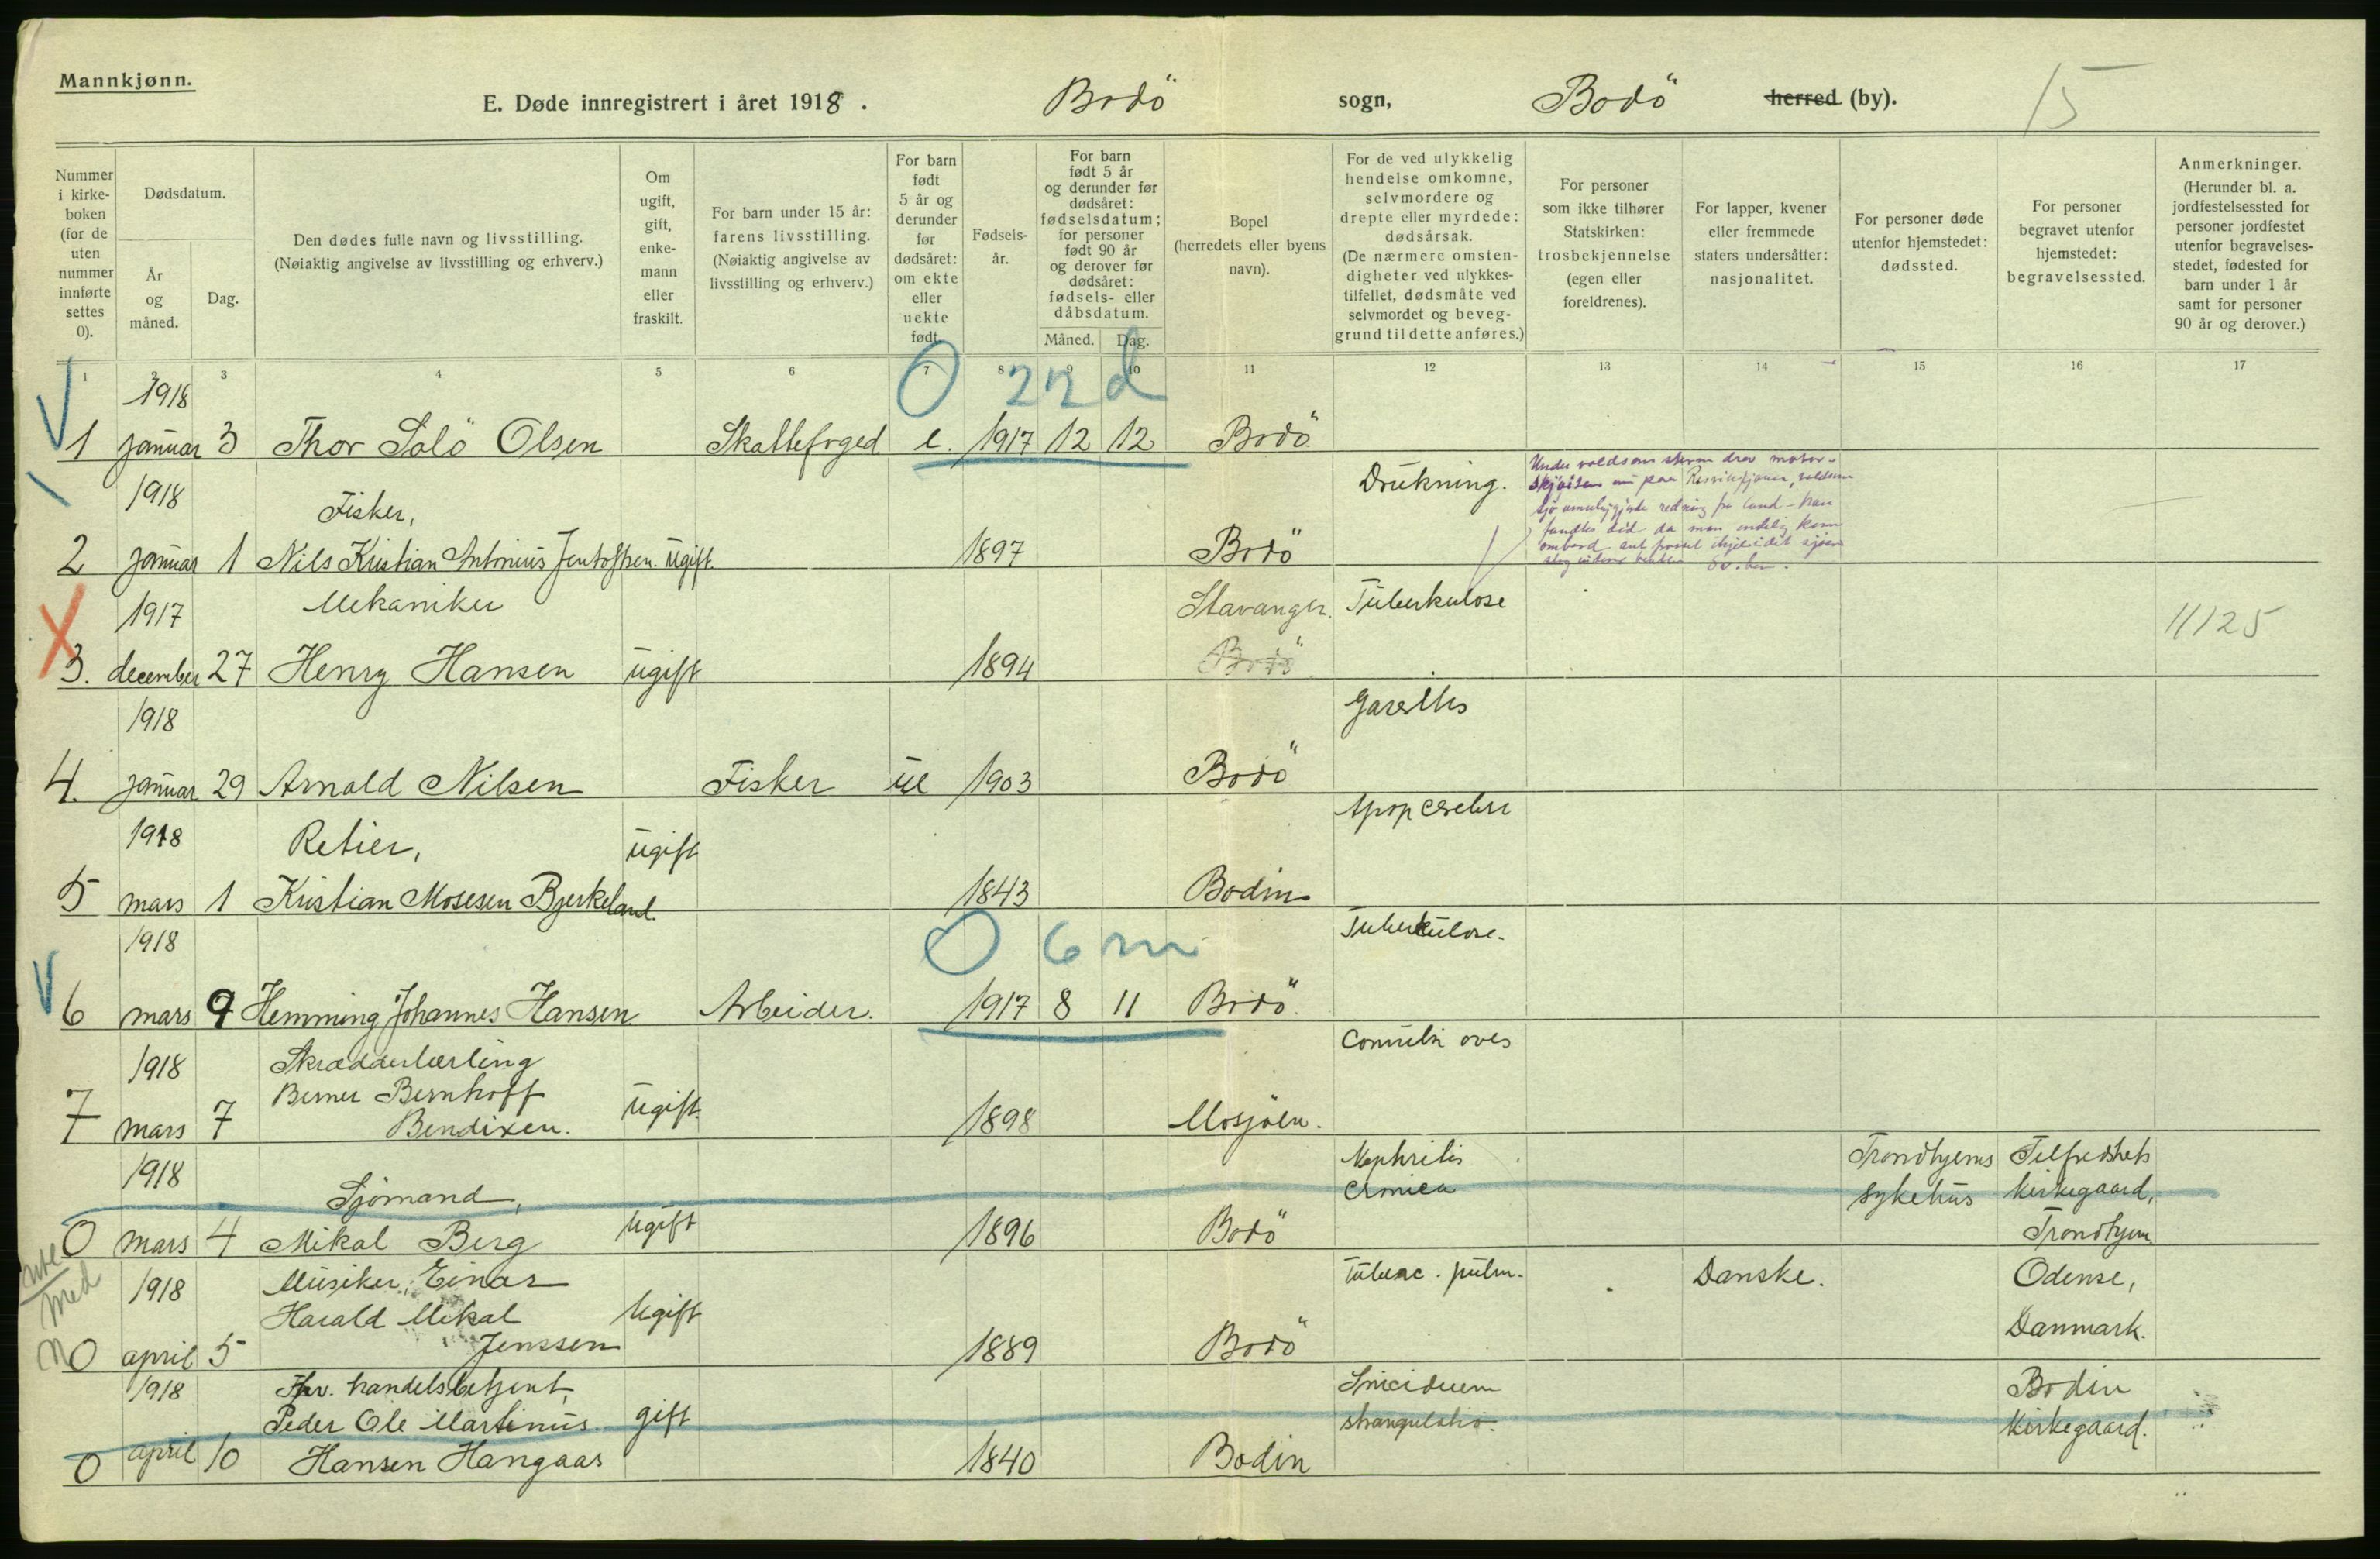 Mannkjønn.
E. Døde innregistrert i året 1918. Bodö sogn, Bodö herred (by). 15
Nummer i kirke-boken (for de uten nummer innførte settes 0).
Dødsdatum.
År og måned.
Dag.
Den dødes fulle navn og livsstilling. (Nøiaktig angivelse av livsstilling og erhverv.)
Om ugift, gift, enke-mann eller fraskilt.
For barn under 15 år: farens livsstilling. (Nøiaktig angivelse av livsstilling og erhverv.)
For barn født 5 år og derunder før dødsåret: om ekte eller uekte født.
Fødsels-år.
For barn født 5 år og derunder før dødsåret: fødselsdatum; for personer født 90 år og derover før dødsåret: fødsels- eller dåbsdatum.
Måned. Dag.
Bopel (herredets eller byens navn).
For de ved ulykkelig hendelse omkomne, selvmordere og drepte eller myrdede: dødsårsak. (De nærmere omsten-digheter ved ulykkes-tilfellet, dødsmåte ved selvmordet og beveg-grund til dette anføres.)
For personer som ikke tilhører Statskirken: trosbekjennelse (egen eller foreldrenes).
For lapper, kvener eller fremmede staters undersåtter: nasjonalitet.
For personer døde utenfor hjemstedet: dødssted.
For personer begravet utenfor hjemstedet: begravelsessted.
Anmerkninger. (Herunder bl. a. jordfestelsessted for personer jordfestet utenfor begravelses-stedet, fødested for barn under 1 år samt for personer 90 år og derover.)
1 2 3 4 5 6 7 8 9 10 11 12 13 14 15 16 17
0 22 d
1918
1 januar 3 Thor Salö Olsen Skattefoged e. 1917 12 12 Bodö
1918 Fisker, Drukning.
2 januar 1 Nils Kristian Antonius Jentoftsen. Ugift. 1897 Bodö
1917 Mekaniker Stavanger. Tuberkulose 11125
3. december 27 Henry Hansen ugift 1894 Bodö
1918
4. januar 29 Arnold Nilsen Fisker ue 1903 Bodö
1918 Retier, ugift Apop cerebri
5 mars 1 Kristian Mosesen Bjerkeland. 1843 Bodin
0 6 m
1918 Tuberkulose.
6 mars 9 Hemming Johannes Hansen Arbeider. 1917 8 11 Bodö
1918 Skrædderlærling
Berner Bernhoff
7 mars 7 Bendixen. Ugift. 1898 Mosjöen.
1918 Sjömand, Nephritis cronica Trondhjems sykehus Tilfredshets kirkegaard, Trondhjem.
0 mars 4 Mikal Berg Ugift 1896 Bodö
med
1918 Musiker, Einar Tuberc. pulm. Danske. Odense,
Harald Mikal Ugift Danmark.
0 april 5 Jenssen 1889 Bodö
1918 Fhv. handelsbetjent, Suicidium Bodin
Peder Ole Martinus gift strangulatio. Kirkegaard.
0 april 10 Hansen Hangaas 1840 Bodin